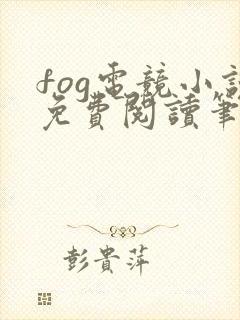 fog電競小說
免費閱讀筆
彭貴萍